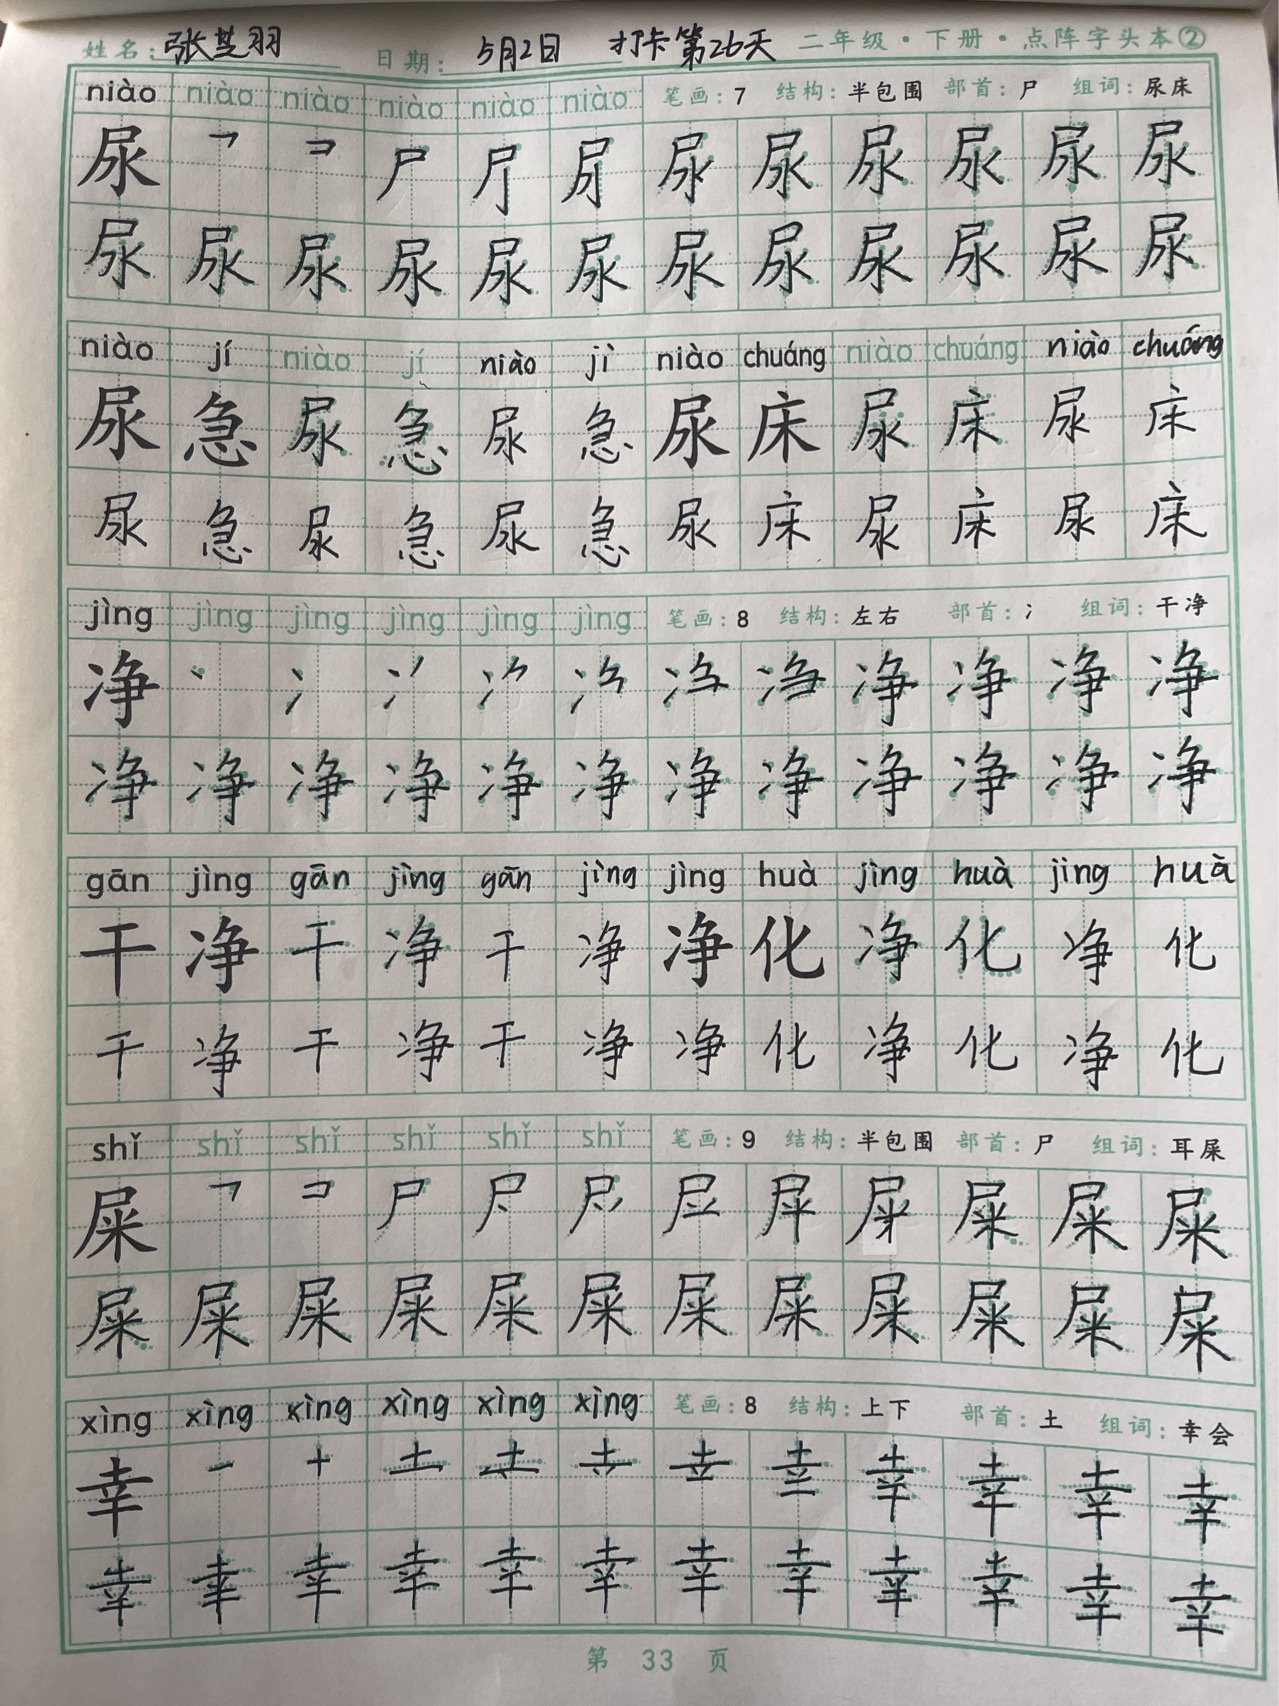 姓名：张芝羽 日期：5月2日 打卡第26天 二年级·下册·点阵字头本②
niào niào niào niào niào niào 笔画：7 结构：半包围 部首：尸 组词：尿床
尿 尿 尿 尿 尿 尿 尿
尿 尿 尿 尿 尿 尿 尿 尿 尿 尿 尿 尿
niào jí niào jí niào jì niào chuáng niào chuáng niào chuáng
尿 急 尿 急 尿 急 尿 床 尿 床 尿 床
尿 急 尿 急 尿 急 尿 床 尿 床 尿 床
jìng jìng jìng jìng jìng jìng 笔画：8 结构：左右 部首：冫 组词：干净
净 丶 冫 净 净 净 净
净 净 净 净 净 净 净 净 净 净 净 净
gān jìng gān jìng gān jìng jìng huà jìng huà jìng huà
干 净 干 净 干 净 净 化 净 化 净 化
干 净 干 净 干 净 净 化 净 化 净 化
shǐ shǐ shǐ shǐ shǐ shǐ 笔画：9 结构：半包围 部首：尸 组词：耳屎
屎 尸 屎 屎 屎
屎 屎 屎 屎 屎 屎 屎 屎 屎 屎 屎 屎
xìng xìng xìng xìng xìng xìng 笔画：8 结构：上下 部首：土 组词：幸会
幸 一 十 土 幸 幸 幸 幸
幸 幸 幸 幸 幸 幸 幸 幸 幸 幸 幸 幸
第 33 页